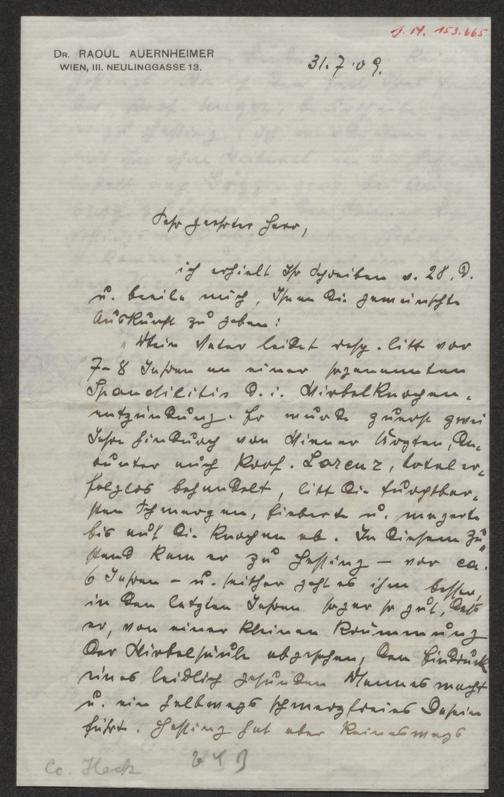 J. N. 153.665
DR. RAOUL AUERNHEIMER
WIEN, III. NEULINGGASSE 13.
31.7.09.
Sehr geehrter Herr,
ich erhielt Ihr Schreiben v. 28. d.
u. beeile mich, Ihnen die gewünschte
Auskunft zu geben:
Mein Vater leidet resp. litt vor
7-8 Jahren an einer sogenannten
Spondilitis d. i. Wirbelknochen-
entzündung. Er wurde zuerst zwei
Jahre hindurch von Wiener Ärzten, da-
runter auch Prof. Lorenz, total er-
folglos behandelt, litt die furchtbar-
sten Schmerzen, fieberte u. magerte
bis auf die Knochen ab. In diesem Zu-
stand kam er zu Hessing – vor ca.
6 Jahren – u. seither geht es ihm besser,
in den letzten Jahren sogar so gut, dass
er, von einer kleinen Krümmung
der Wirbelsäule abgesehen, den Eindruck
eines leidlich gesunden Mannes macht
u. ein halbwegs schmerzfreies Dasein
führt. Hessing hat aber keineswegs
Co. Heck